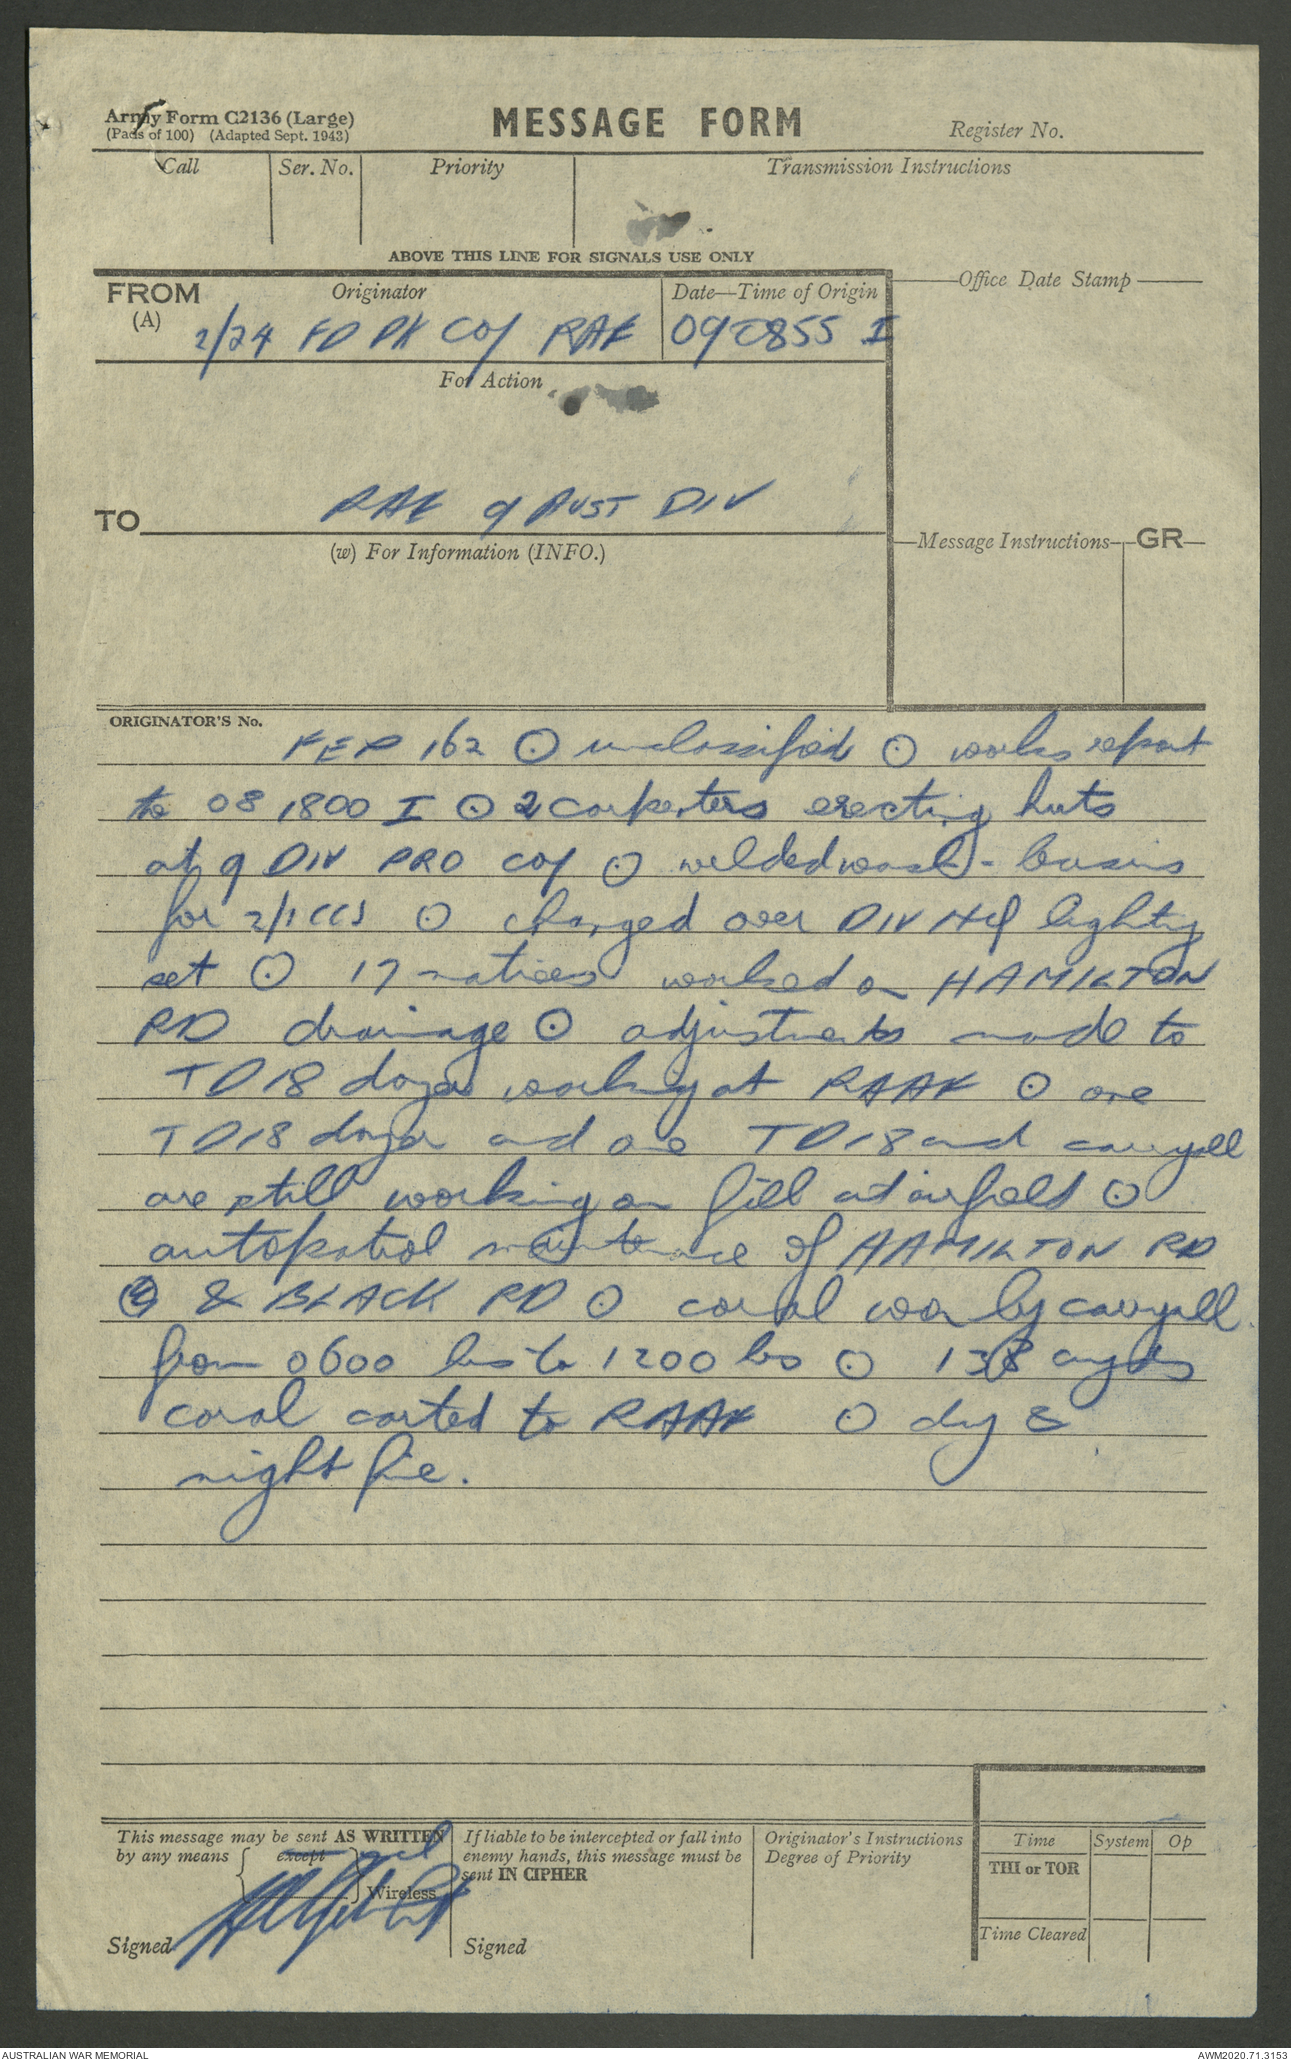 Army Form C2136 (Large)
(Pads of 100) (Adapted Sept. 1943)
MESSAGE FORM
Register No.
Call
Ser. No.
Priority
Transmission Instructions
ABOVE THIS LINE FOR SIGNALS USE ONLY
FROM
(A)
Originator
Date—Time of Origin
Office Date Stamp
2/24 FD PK COY RAE
090855 I
For Action
TO
RAE 9 AUST DIV
(w) For Information (INFO.)
Message Instructions
GR
ORIGINATOR'S No.
FEP 162 ⊙ unclassified ⊙ works report
to 081800 I ⊙ 2 carpenters erecting huts
at 9 DIV PRO COY ⊙ welded wash-basins
for 2/1 CCS ⊙ changed over DIV HQ lighting
set ⊙ 17 natives worked on HAMILTON
RD drainage ⊙ adjustments made to
TD18 dozer working at RAAF ⊙ one
TD18 dozer and one TD18 and carryall
are still working on fill at airfield ⊙
autopatrol maintenance of HAMILTON RD
& BLACK RD ⊙ coral won by carryall
from 0600 hrs to 1200 hrs ⊙ 138 cu yds
coral carted to RAAF ⊙ day &
night fine.
This message may be sent AS WRITTEN
by any means
except
Wireless
Signed
If liable to be intercepted or fall into
enemy hands, this message must be
sent IN CIPHER
Signed
Originator's Instructions
Degree of Priority
Time
System
Op
THI or TOR
Time Cleared
AUSTRALIAN WAR MEMORIAL
AWM2020.71.3153